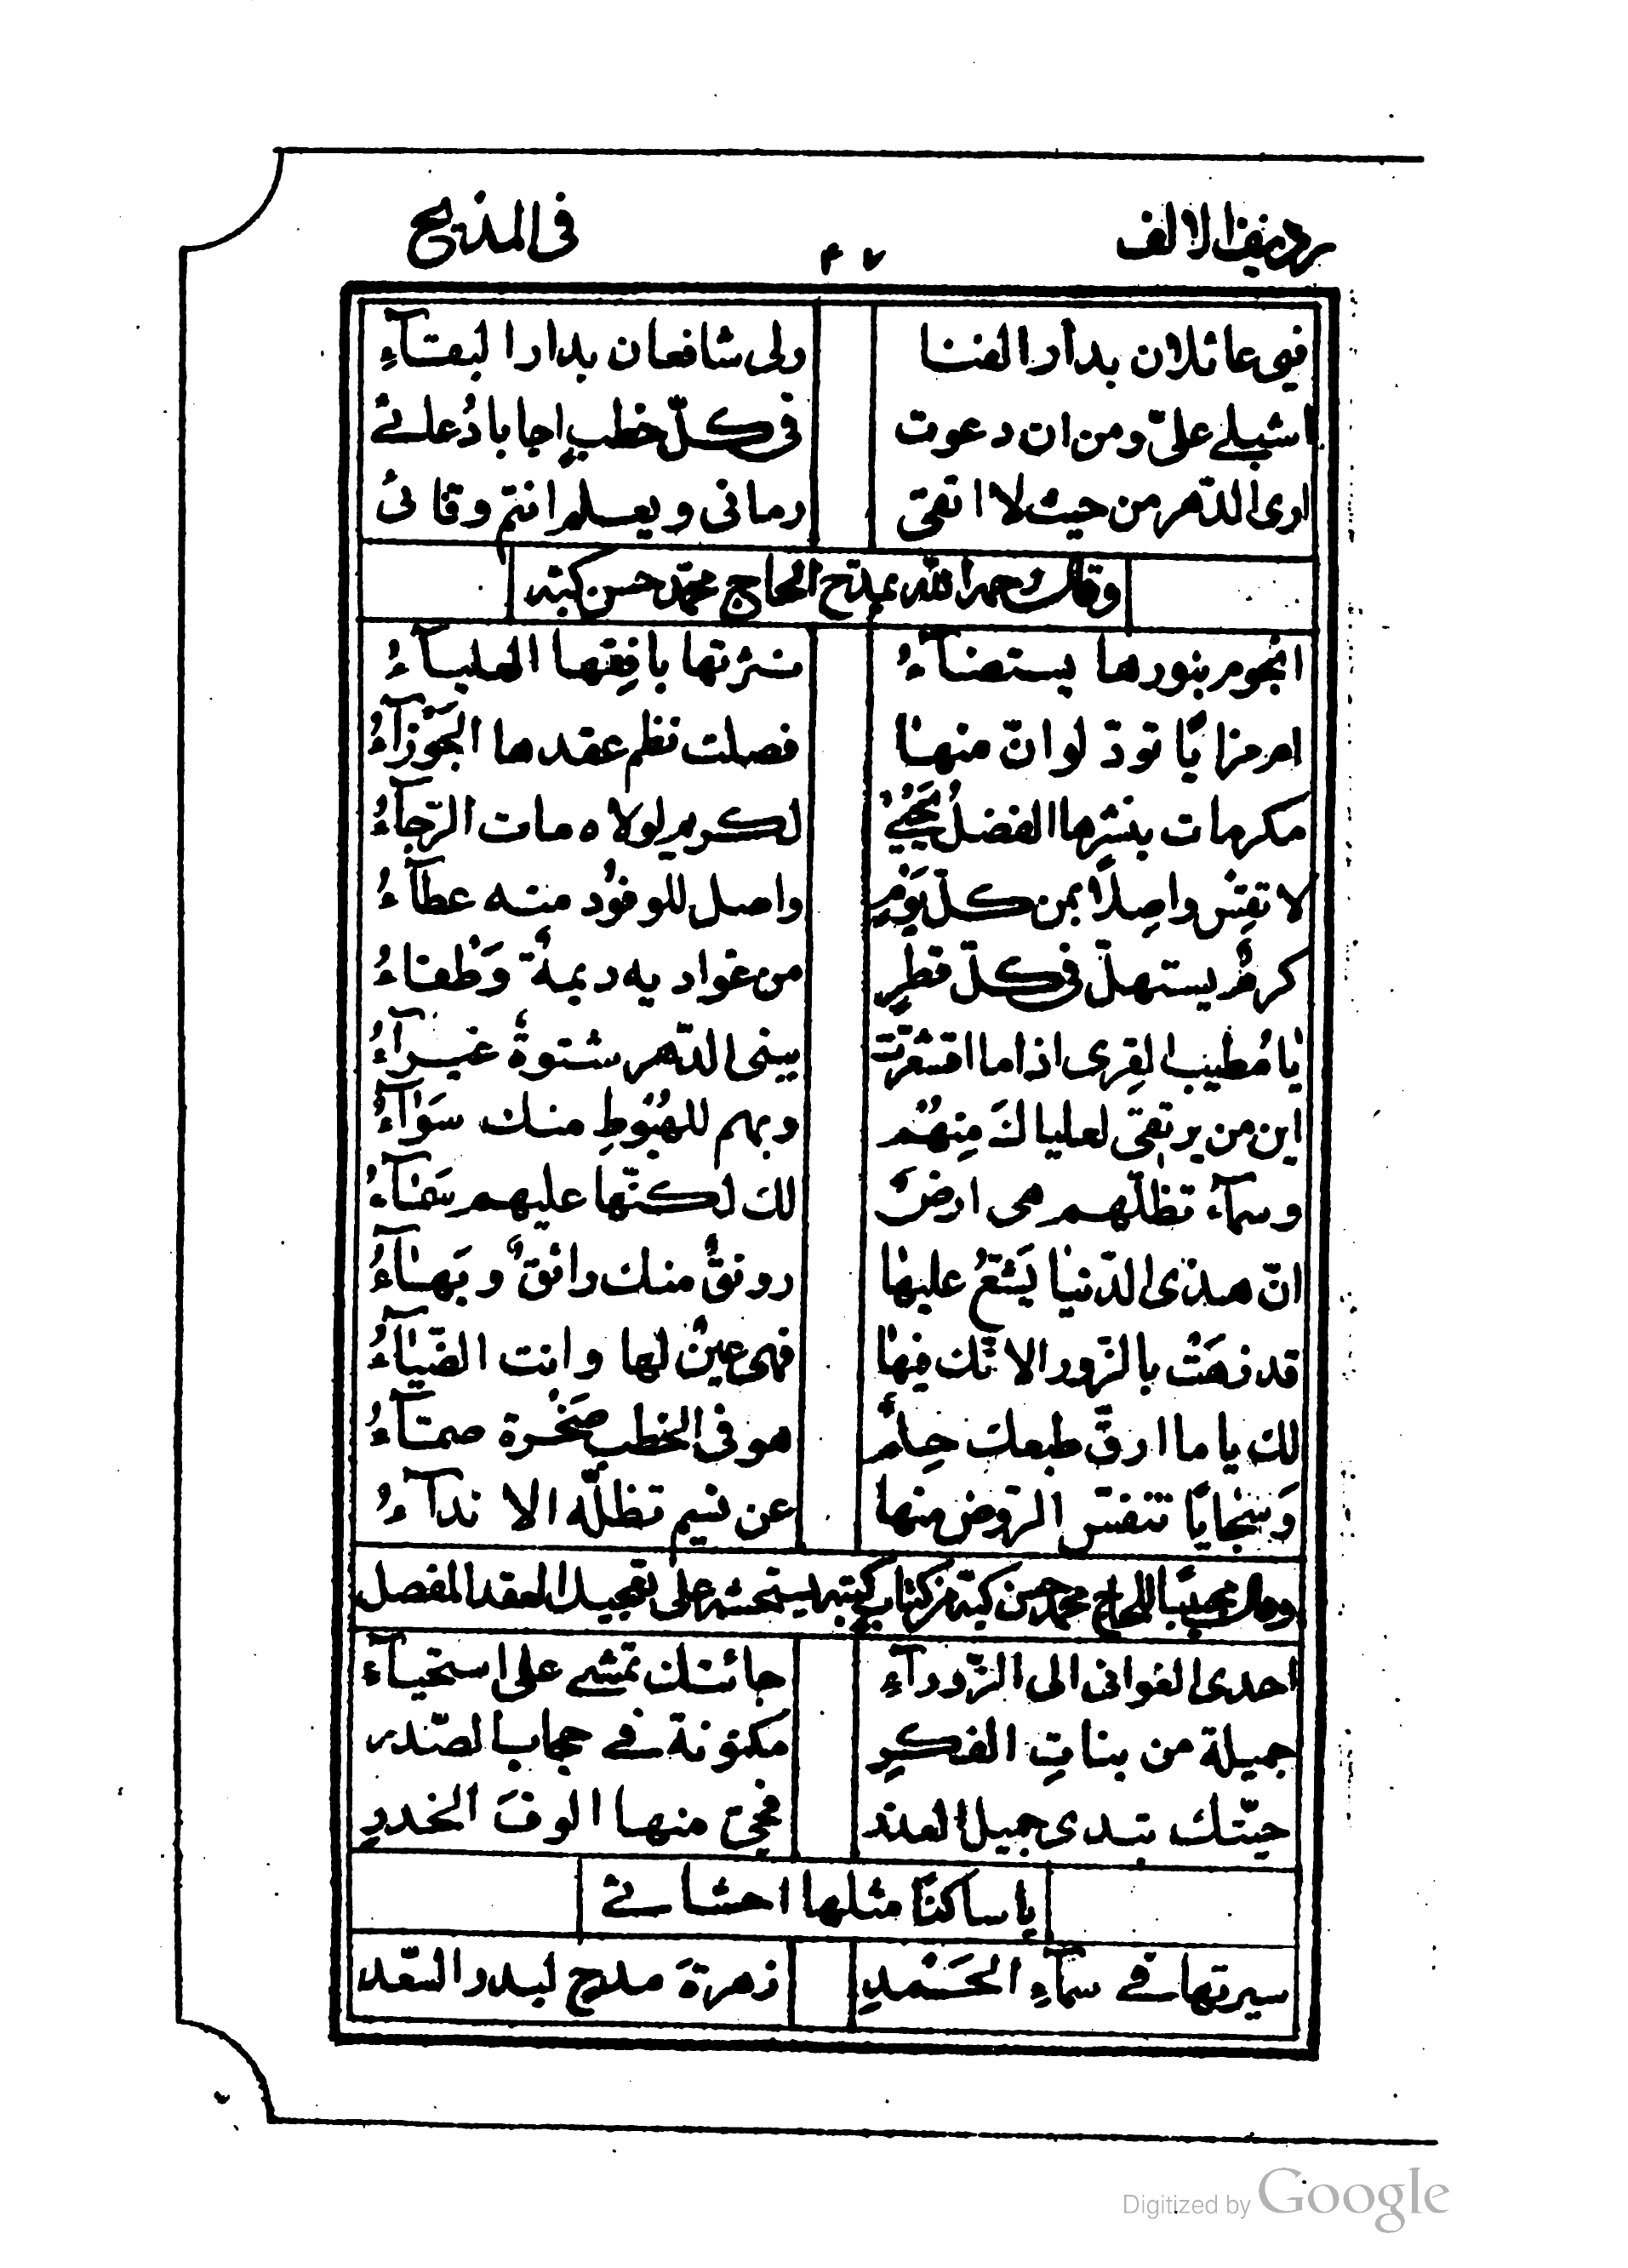 رديف الالف ٤٧ فى المديح
فهى عائلان بدار الفنا ولى شافعان بدار البقآءِ
اشبلے علىّ ومن ان دعوت فى كلّ خطبٍ اجابا دُعائے
ارى الدّهر من حيث لا اتقى رمانى ويعلم انتم وقائى
وقال رحمه الله يمدح الحاج محمّد حسن كبّه
انجوم بنورها يستضآءُ نثرتها بافقها العليآءُ
ام مزايًا تودّ لو انّ منها فصلت نظم عقدها الجَوْزآءُ
مكرمات بنشرها الفضلُ يُحْيىٰ لكريم لولاه مات الرّجآءُ
لا تقِسْ واصِلًا بمن كلّ يَوْمٍ واصل للوفوُد منه عطآءُ
كرمٌ يستهلّ فى كلّ قطرٍ من غواديه ديمةٌ وَطْفاءُ
يا مُطيب القِرى اذا ما اقشعرّت ببنى الدّهر شتوةٌ غبرآءُ
اين من يرتقى لعلياك مِنهُم وبهم للهُبُوطِ منك سَوآءُ
وسمآء تظلّهم هى ارضٌ لك لكنّها عليهم سَمآءُ
انّ هذى الدّنيا يَشعُّ عليها رونقٌ منك رائقٌ وبَهآءُ
قد زهَتْ بالزّور الا تك فيها فهى عينٌ لها وانت الضّيآءُ
لك يا ما ارقَّ طبعك حِلمٌ هو فى الخطب صَخْرة صمّآءُ
وَسَجايًا تنفسّ الرّوض منها عن نسيم تظلّه الاندآءُ
وقال مجيبًا للحاج محمّد حسن كبّه من كتاب كتبه يستحثه على تعجيل العقد المفصل
احدى الغوانى الى الزّورآءِ جائتك تمشے على استحيآءِ
جميلة من بناتِ الفكرِ مكنونة فے حجاب الصّدر
حيّتك تبدى جميل العذر فحىّ منها الوفَ الخدرِ
يا ساكنًا مثلها احشائے
سيرتها فے سمآءِ الحَمْدِ زهرةَ مدح لبدر السّعد
Digitized by Google